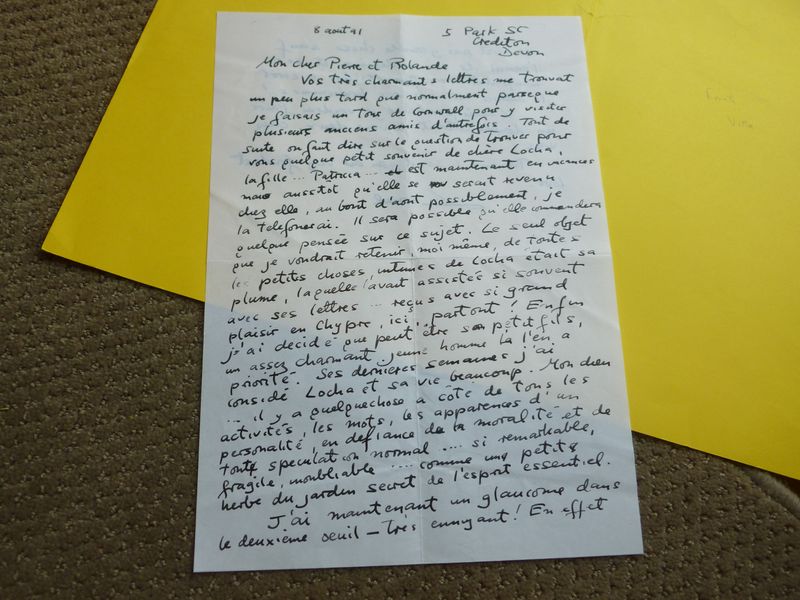 8 aout 91
5 Park St
Crediton
Devon
Mon cher Pierre et Rolande
Vos très charmants lettres me trouvat
un peu plus tard que normalment parseque
je faisais un Tour de Cornwall pour y visiter
plusieurs anciens amis d'autrefois. Tout de
suite on faut dire sur le question de trouver pour
vous quelque petit souvenir de chère Locha,
la fille ... Patricia ... est maintenant en vacances
mais aussitot qu'elle se serait revenu
chez elle, au bout d'aout possiblement, je
la telefonerai. Il sera possible qu'elle commendera
quelque pensée sur ce sujet. Le seul objet
que je voudrait retenir, moi même, de toutes
les petits choses, intimes de Locha était sa
plume, laquelle l'avait assistée si souvent
avec ses lettres ... reçus avec si grand
plaisir en Chypre, ici, partout! Enfin
j'ai décidé que peut être son petit fils,
un assez charmant jeune homme la l'en a
priorité. Ses dernières semaines j'ai
considé Locha et sa vie beaucoup. Mon dieu
... il y a quelquechose à coté de tous les
activités, les mots, les apparences d'un
personalité, en defiance de la moralité et de
toute speculation normal .... si remarkable,
fragile, inoubliable .... comme une petite
herbe du jardin secret de l'esprit essentiel.
J'ai maintenant un glaucome dans
le deuxième oeuil - très ennuyant! En effet